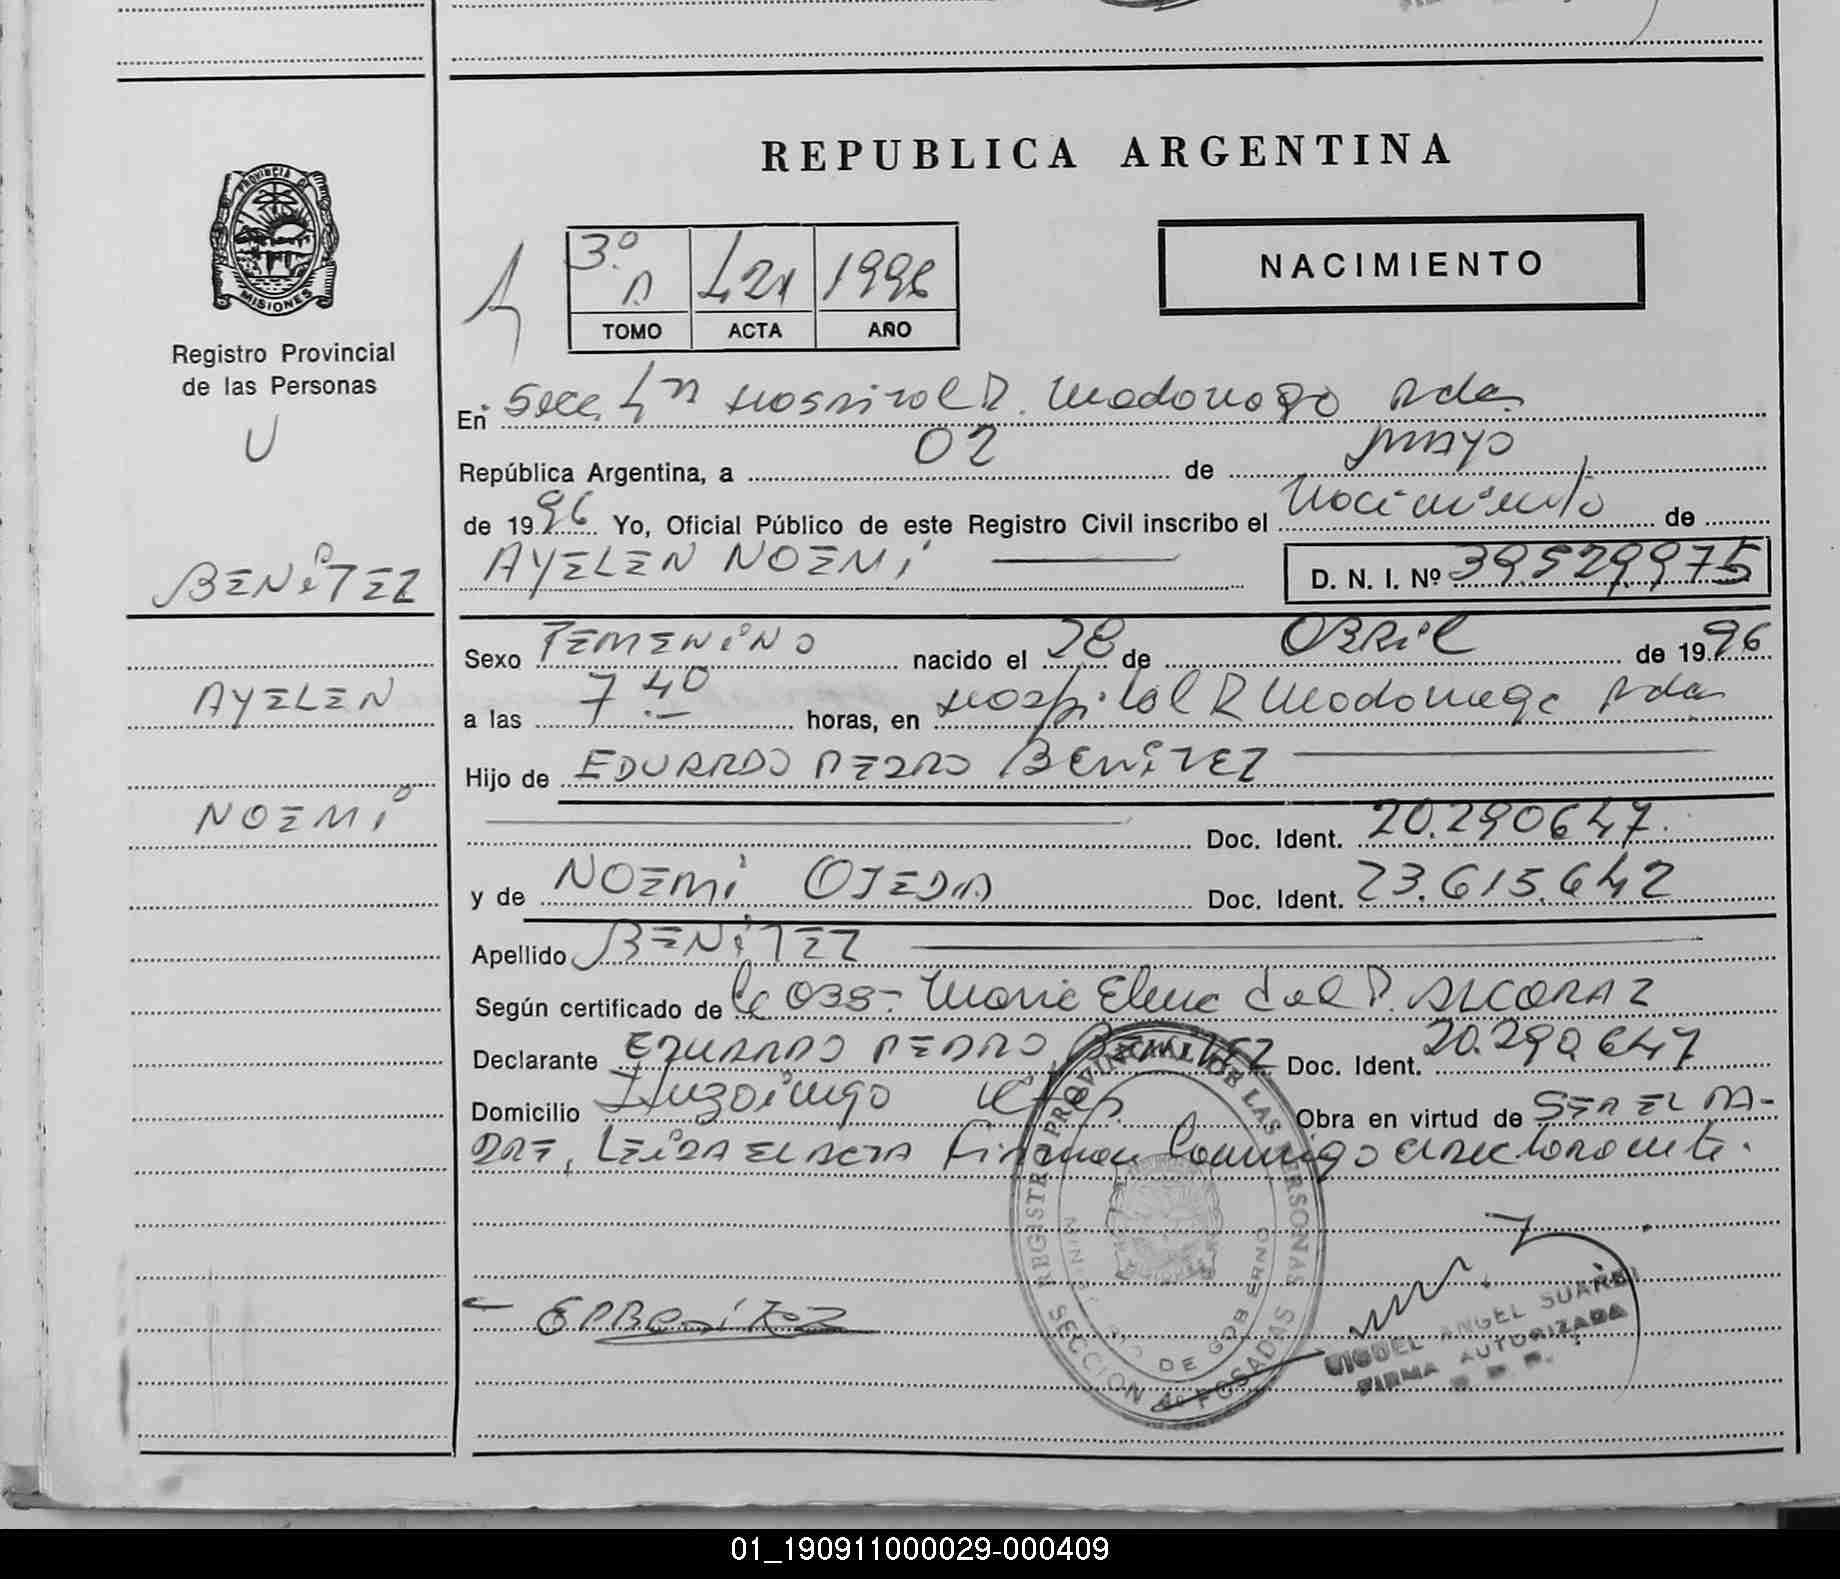 REPUBLICA ARGENTINA
PROVINCIA DE
MISIONES
Registro Provincial
de las Personas
3º
1996
TOMO ACTA AÑO
NACIMIENTO
En Secc 4ª Hospital R. Madariaga Pdas
República Argentina, a 02 de mayo
de 1996 Yo, Oficial Público de este Registro Civil inscribo el Nacimiento de
AYELEN NOEMI D. N. I. Nº 39.529.975
BENITEZ
AYELEN
NOEMI
Sexo FEMENINO nacido el 28 de ABRIL de 1996
a las 7 40 horas, en Hospital R Madariaga Pdas
Hijo de EDUARDO PEDRO BENITEZ
Doc. Ident. 20.290647
y de NOEMI OJEDA Doc. Ident. 23.615.642
Apellido BENITEZ
Según certificado de la OBS- Maria Elena del P. ALCORAZ
Declarante EDUARDO PEDRO BENITEZ Doc. Ident. 20.290.647
Domicilio Ituzaingo Ctes. Obra en virtud de SER EL PA-
DRE, LEIDA EL ACTA Firman Conmigo el declarante.
REGISTRO PROVINCIAL DE LAS PERSONAS
DE GOBIERNO
SECCION 4º POSADAS
MIGUEL ANGEL SUAREZ
FIRMA AUTORIZADA
01_190911000029-000409